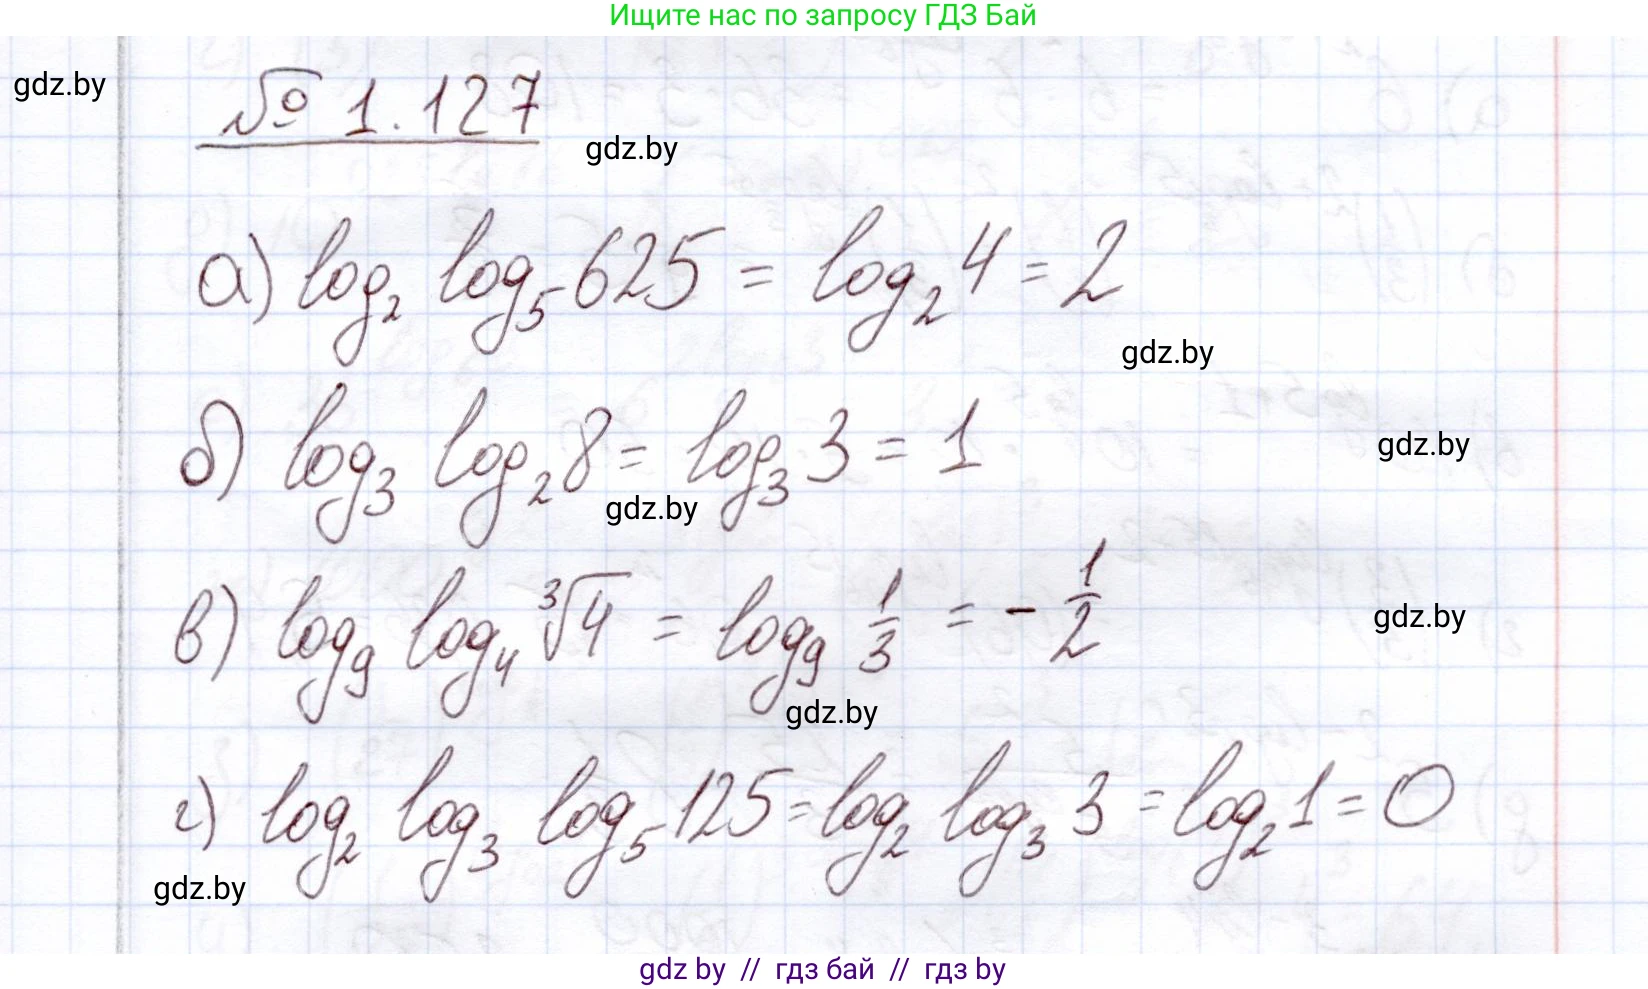 Ищите нас по запросу ГДЗ Бай
gdz.by
№ 1.127
gdz.by
а) log₂ log₅ 625 = log₂ 4 = 2
gdz.by
б) log₃ log₂ 8 = log₃ 3 = 1
gdz.by
gdz.by
в) log₉ log₄ ³√4 = log₉ 1/3 = - 1/2
gdz.by
gdz.by
г) log₂ log₃ log₅ 125 = log₂ log₃ 3 = log₂ 1 = 0
gdz.by
gdz by // гдз бай // гдз by